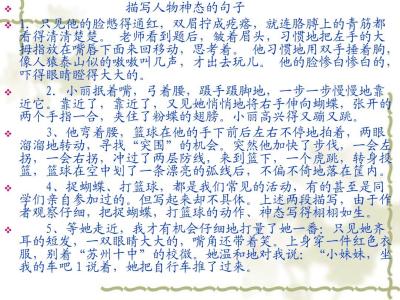 描写人物神态的句子
1、只见他的脸憋得通红，双眉拧成疙瘩，就连胳膊上的青筋都
看得清清楚楚。 老师看到题后，皱着眉头，习惯地把左手的大
拇指放在嘴唇下面来回移动，思考着。 他习惯地用双手捶着胸，
像人猿泰山似的嗷嗷叫几声，才出去玩儿。 他的脸惨白惨白的，
吓得眼睛瞪得大大的。
2、小丽抿着嘴，弓着腰，蹑手蹑脚地，一步一步慢慢地靠
近它。靠近了，靠近了，又见她悄悄地将右手伸向蝴蝶，张开的
两个手指一合，夹住了粉蝶的翅膀。小丽高兴得又蹦又跳。
3、他弯着腰，篮球在他的手下前后左右不停地拍着，两眼
溜溜地转动，寻找“突围”的机会。突然他加快了步伐，一会左
拐，一会右拐，冲过了两层防线，来到篮下，一个虎跳，转身投
篮，篮球在空中划了一条漂亮的弧线后，不偏不倚地落在筐内。
4、捉蝴蝶、打篮球，都是我们常见的活动，有的甚至是同
学们亲自参加过的。但写起来却不具体。上述两段描写，由于作
者观察仔细，把捉蝴蝶，打篮球的动作、神态写得栩栩如生。
5、等她走近，我才有机会仔细地打量了她一番：只见她齐
耳的短发，一双眼睛大大的，嘴角还带着笑。上身穿一件红色衣
服，别着“苏州十中”的校徽。她温和地对我说：“小妹妹，坐
我的车吧１说着，她把自行车推了过来。